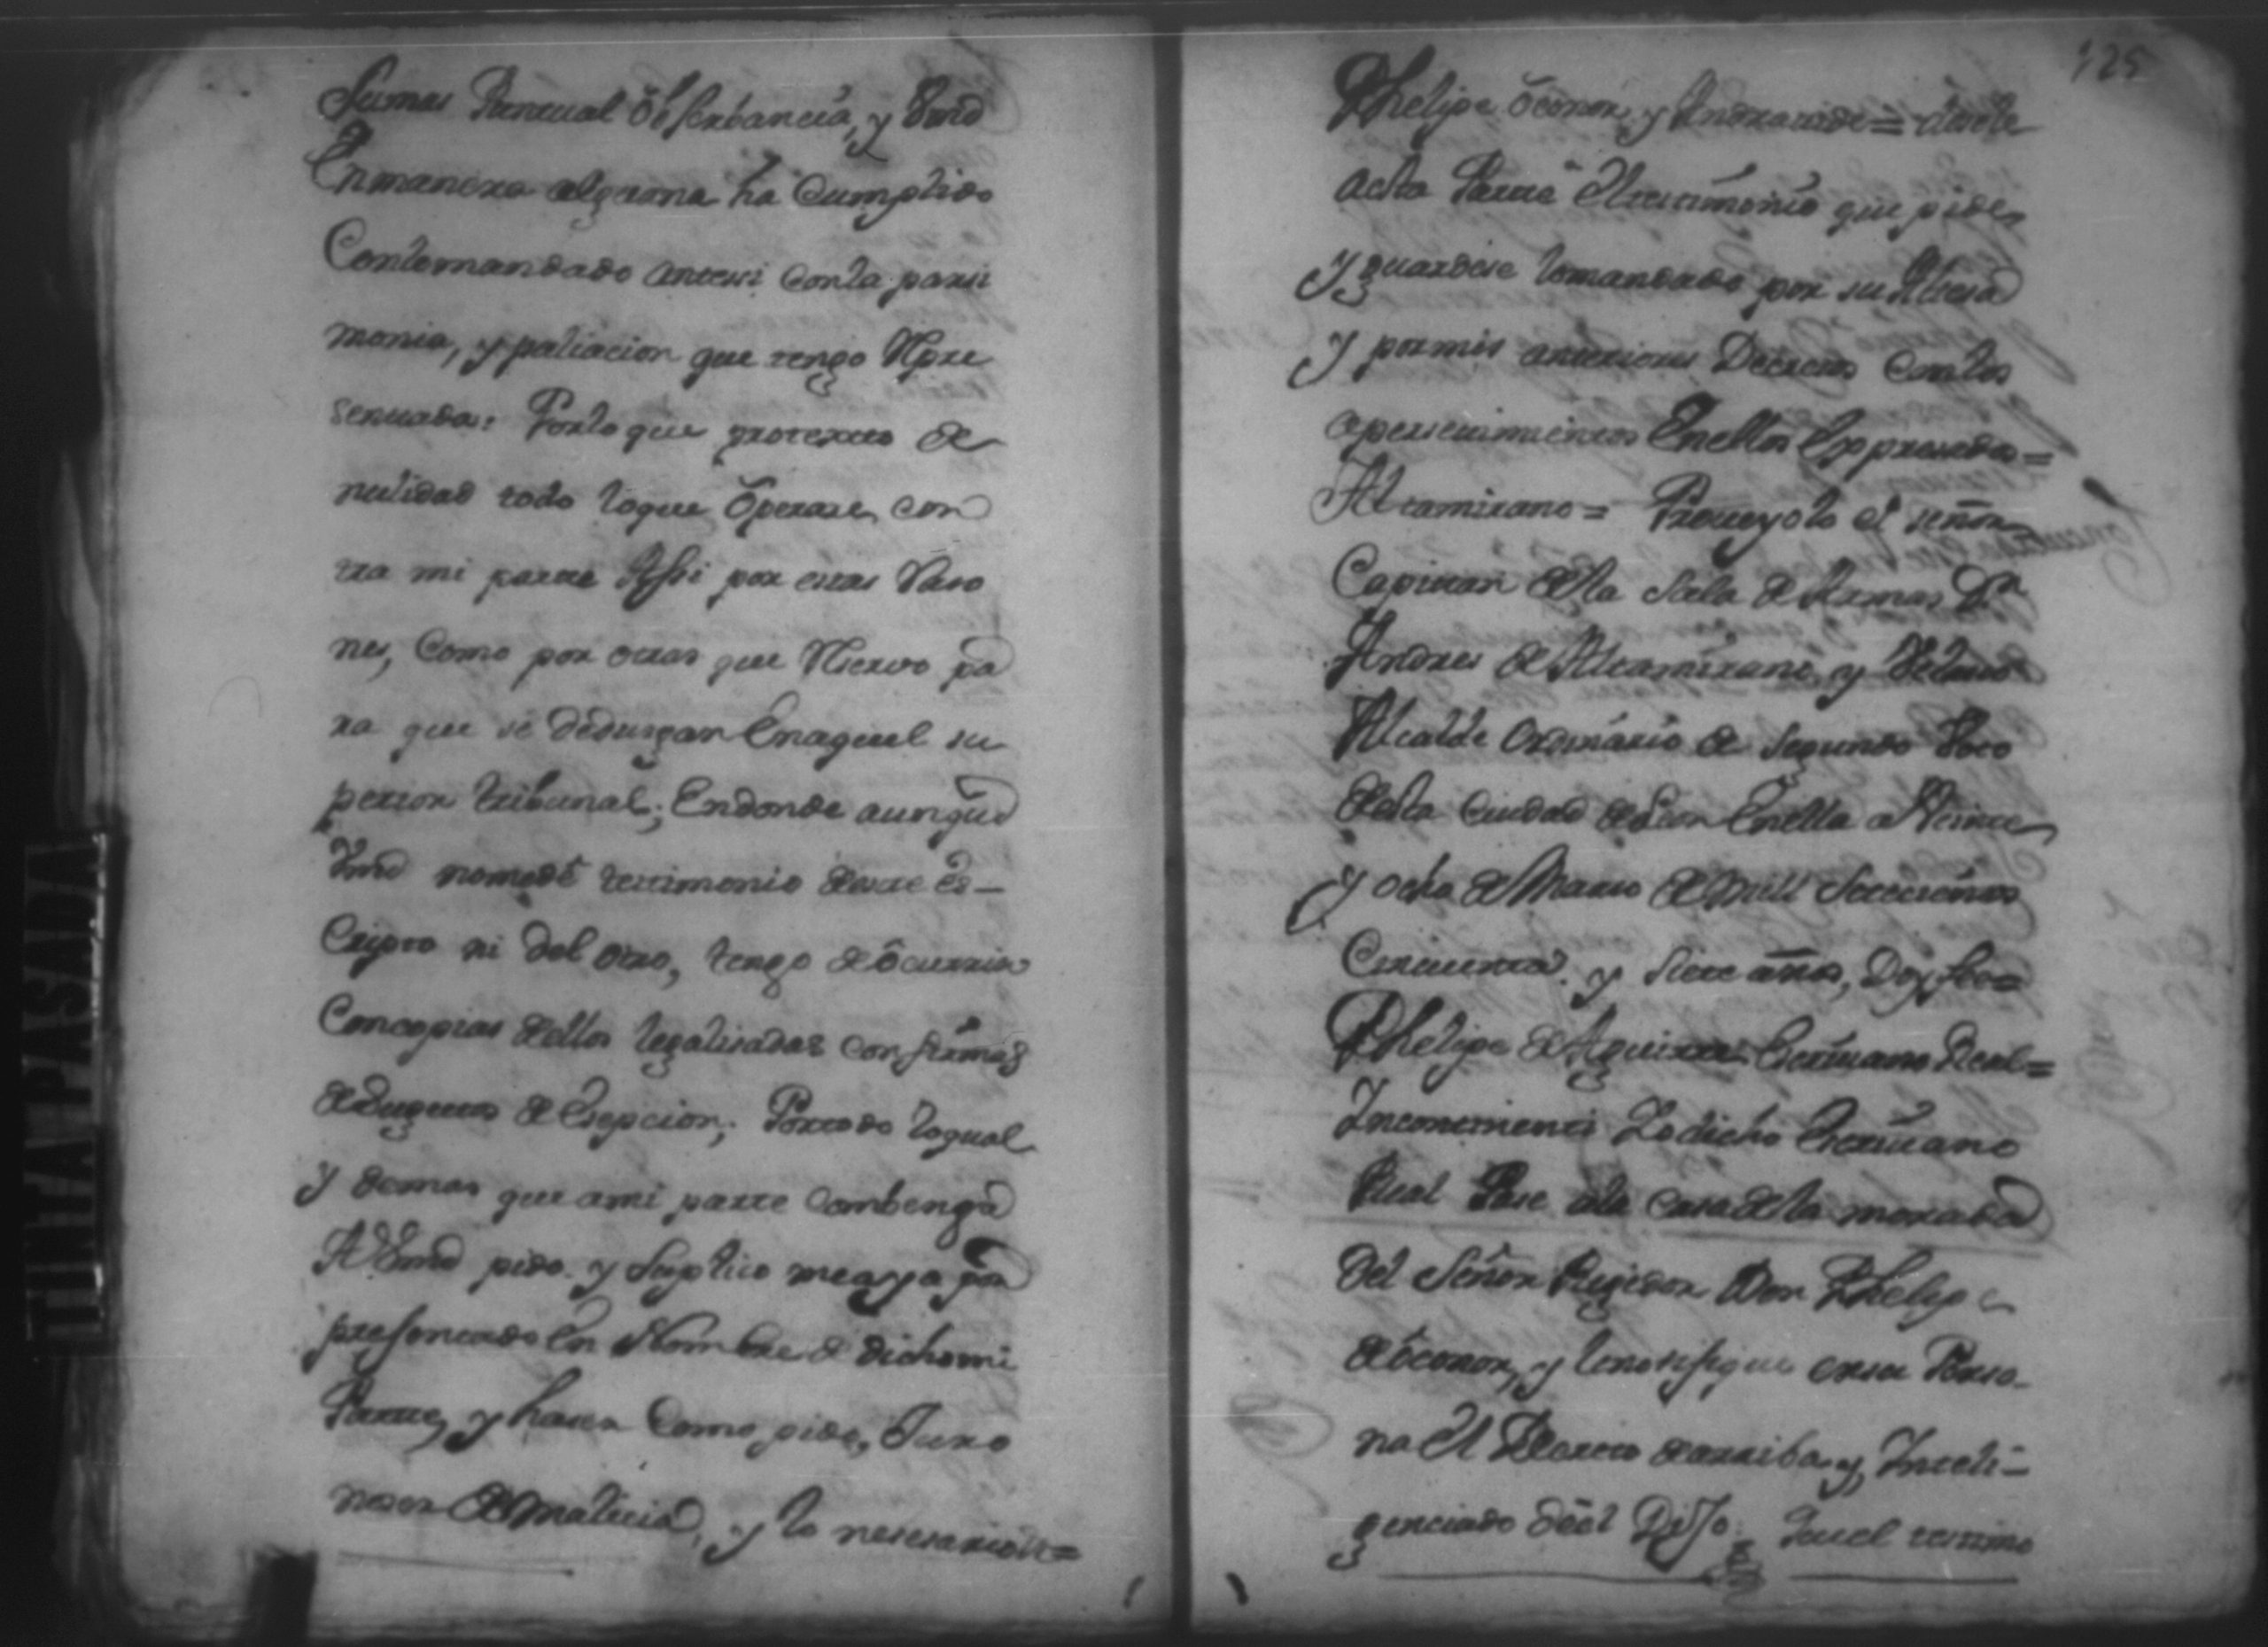 sumas Puntual obserbancia, y Vmd
Enmanera alguna ha Cumplido
Conlomandado antessi conla parsi
monia, y paliacion que tengo Repre
sentada: Porlo que protexto de
nulidad todo loque operare con
tra mi parte Assi por estas Raso
nes, Como por otras que Reservo pa
ra que se dedusgan Enaquel su
perior tribunal; Endonde aunque
Vmd nomedé testimonio deeste es-
Cripto ni del otro, tengo de ocurrir
Concopias dellos legalisadas con firmas
de Sugetos de Esepcion; Portodo loqual
y demas que ami parte Combenga
A Vmd pido y suplico meaya por
presentado En Nombre de dichomi
Parte, y haser Como pido, Juro
noser de malicia, y lo nesesario =
125
Phelipe Oconor, y Andraxide = desele
aesta Parte El testimonio que pide
y guardese lomandado por su Altesa
y pormis anteriores Decretos Conlos
apersevimientos Enellos Expresados =
Altamirano = Proveyolo el señor
Capitan dela Sala de Armas Dn
Andres de Altamirano, y
Alcalde ordinario de segundo Voto
desta Ciudad de Leon Enella a Veinte
y ocho de Marso de mill Setecientos
Cincuenta y siete años, Doy fee =
Phelipe de Aguirre Escrivano Real =
Incontinenti Yo dicho Escrivano
Real Pase ala casa dela morada
del Señor Regidor Don Phelipe
de Oconor, y lenotifique ensu Perso-
na El Decreto dearriba, y, Inteli-
genciado deél Dijo Que el testimo